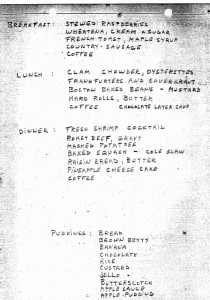 BREAKFAST: STEWED RASPBERRIES
WHEATENA, CREAM & SUGAR
FRENCH TOAST, MAPLE SYRUP
COUNTRY SAUSAGE
COFFEE
LUNCH: CLAM CHOWDER, OYSTERETTES
FRANKFURTERS AND SAUERKRAUT
BOSTON BAKED BEANS - MUSTARD
HARD ROLLS, BUTTER
COFFEE CHOCOLATE LAYER CAKE
DINNER: FRESH SHRIMP COCKTAIL
ROAST BEEF, GRAVY
MASHED POTATOES
BAKED SQUASH - COLE SLAW
RAISIN BREAD, BUTTER
PINEAPPLE CHEESE CAKE
COFFEE
PUDDINGS: BREAD
BROWN BETTY
BANANA
CHOCOLATE
RICE
CUSTARD
JELLO
BUTTERSCOTCH
APPLE SAUCE
APPLE PUDDING